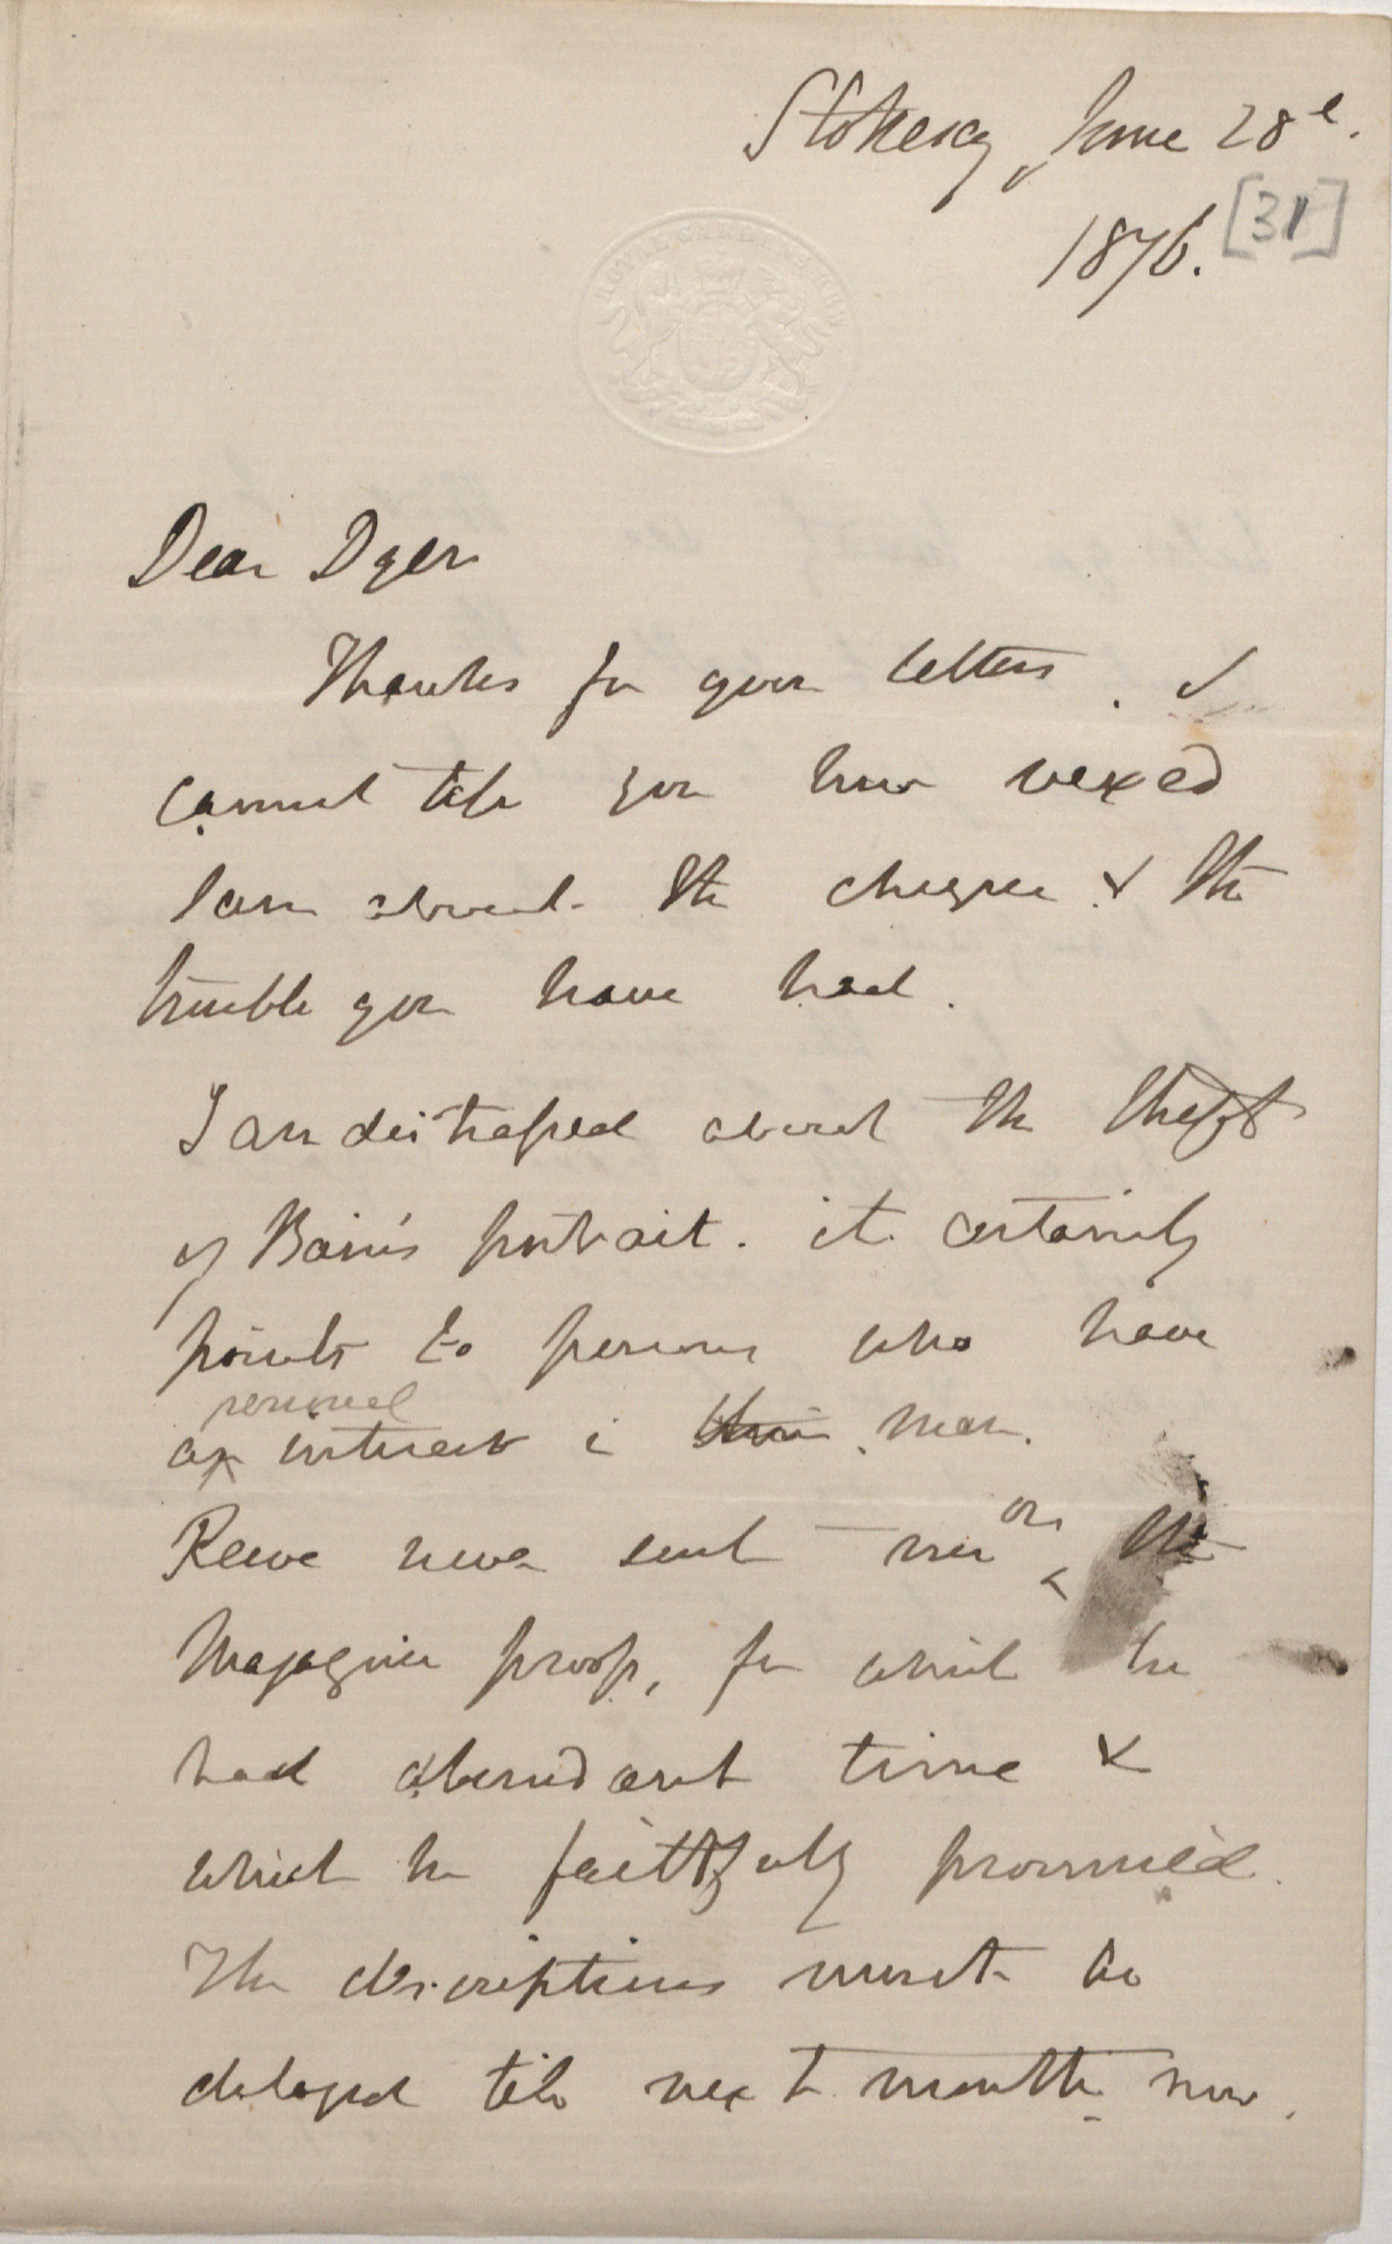 Stokesay, June 28e.
1876.
[31]
ROYAL GARDENS KEW
Dear Dyer
Thanks for your letters. I
cannot tell you how vexed
I am about the cheque & the
trouble you have had.
I am distressed about the theft
of Bain's portrait. it certainly
points to persons who have
personal
an interest in man.
Reeve never sent me on the
Magazine proof, for which he
had abundant time &
which he faithfully promised.
The descriptions must be
delayed till next month now.